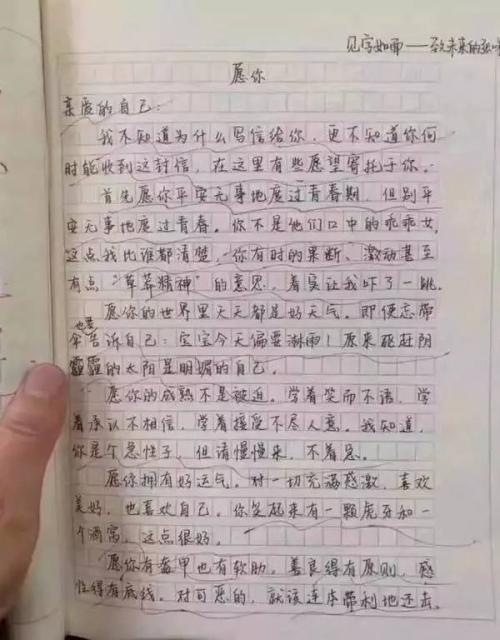 见字如面——致未来的张
愿你
亲爱的自己：
我不知道为什么写信给你，更不知道你何
时能收到这封信，在这里有些愿望寄托于你。
首先愿你平安无事地度过青春期，但别平
安无事地度过青春。你不是他们口中的乖乖女，
这点我比谁都清楚，你有时的果断、激动甚至
有点“草莽精神”的意思，着实让我吓了一跳。
愿你的世界里天天都是好天气。即便忘带
也要
伞告诉自己：宝宝今天偏要淋雨！原来驱赶阴
霾霾的太阳是明媚的自己。
愿你的成熟不是被迫。学着笑而不语，学
着承认不相信，学着接受不尽人意。我知道，
你是个急性子，但请慢慢来，不着急。
愿你拥有好运气。对一切充满感激，喜欢
美好，也喜欢自己。你笑起来有一颗虎牙和一
个酒窝，这点很好。
愿你有盔甲也有软肋。善良得有原则，感
性得有底线。对可恶的，就该连本带利地还击。